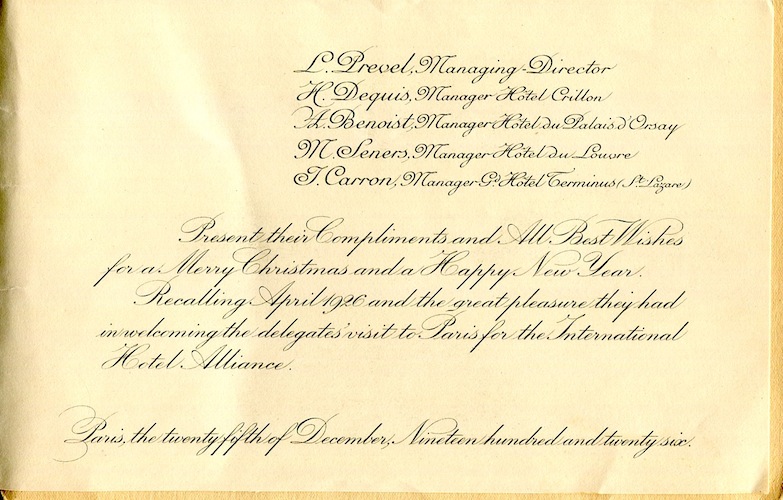 L. Prevel, Managing-Director
H. Dequis, Manager Hôtel Crillon
A. Benoist, Manager Hôtel du Palais d'Orsay
M. Seners, Manager Hôtel du Louvre
J. Carron, Manager Gd Hôtel Terminus (St Lazare)
Present their Compliments and All Best Wishes
for a Merry Christmas and a Happy New Year.
Recalling April 1926 and the great pleasure they had
in welcoming the delegates' visit to Paris for the International
Hotel Alliance.
Paris, the twenty fifth of December, Nineteen hundred and twenty six.